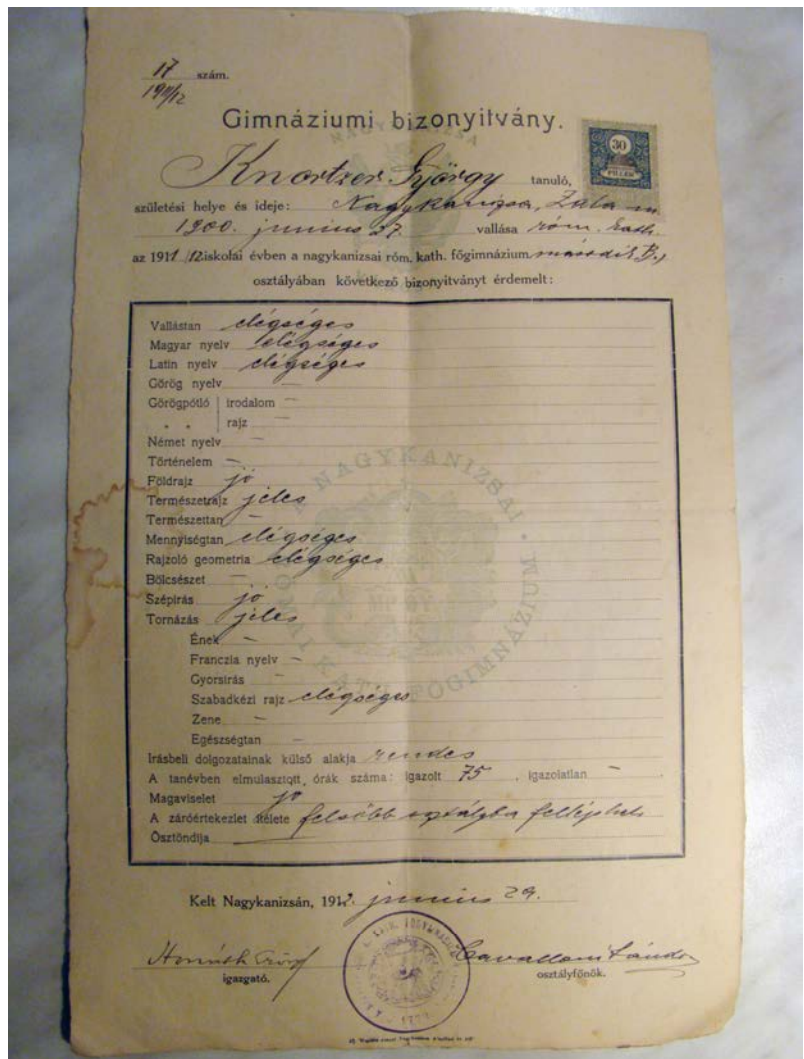 17 szám.
1911/12
Gimnáziumi bizonyítvány.
30
FILLÉR
Knortzer György tanuló,
születési helye és ideje: Nagykanizsa, Zala m.
1900. junius 27. vallása róm. kath.
az 1911/12 iskolai évben a nagykanizsai róm. kath. főgimnázium második B.,
osztályában következő bizonyitványt érdemelt:
Vallástan elégséges
Magyar nyelv elégséges
Latin nyelv elégséges
Görög nyelv —
Görögpótló irodalom —
„ „ rajz —
Német nyelv —
Történelem —
Földrajz jó
Természetrajz jeles
Természettan —
Mennyiségtan elégséges
Rajzoló geometria elégséges
Bölcsészet —
Szépirás jó
Tornázás jeles
Ének —
Franczia nyelv —
Gyorsirás —
Szabadkézi rajz elégséges
Zene —
Egészségtan —
Irásbeli dolgozatainak külső alakja rendes
A tanévben elmulasztott órák száma: igazolt 75, igazolatlan —
Magaviselet jó
A záróértekezlet itélete felsőbb osztályba felléphet
Ösztöndija
Kelt Nagykanizsán, 1912. junius 29.
Horváth György
igazgató.
Cavalloni Sándor
osztályfőnök.